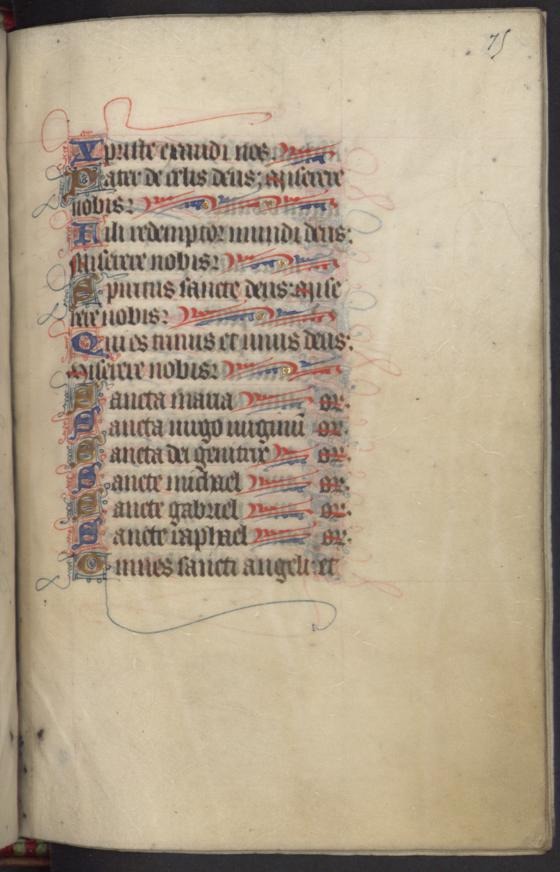 75
Xpriste exaudi nos.
Pater de celis deus: Miserere
nobis:
Fili redemptor mundi deus:
Miserere nobis:
Spiritus sancte deus: Mise
rere nobis:
Qui es trinus et unus deus:
Miserere nobis:
Sancta maria or.
Sancta uirgo uirginū or.
Sancta dei genitrix or.
Sancte michael or.
Sancte gabriel or.
Sancte raphael or.
Omnes sancti angeli et